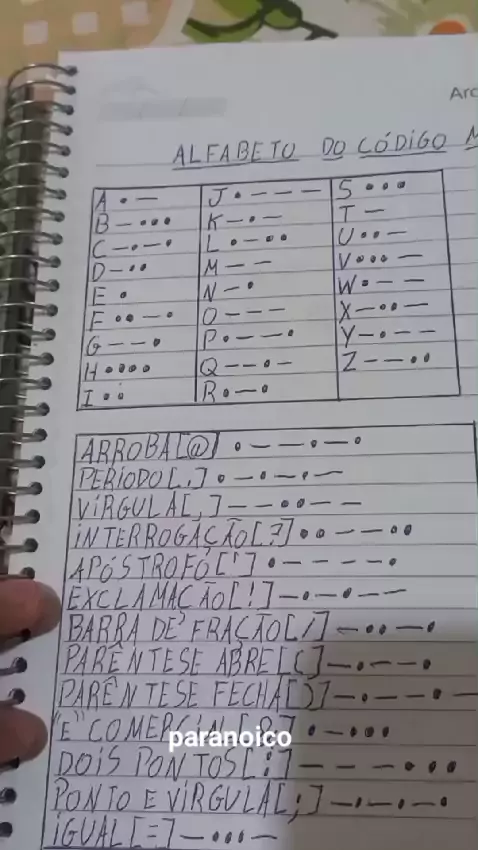 Arc
ALFABETO DO CÓDIGO M
A • — J • — — — S • • •
B — • • • K — • — T —
C — • — • L • — • • U • • —
D — • • M — — V • • • —
E • N — • W • — —
F • • — • O — — — X — • • —
G — — • P • — — • Y — • — —
H • • • • Q — — • — Z — — • •
I • • R • — •
ARROBA[@] • — — • — •
PERÍODO[.] • — • — • —
VÍRGULA[,] — — • • — —
INTERROGAÇÃO[?] • • — — • •
APÓSTROFÓ['] • — — — — •
EXCLAMAÇÃO[!] — • — • — —
BARRA DE FRAÇÃO[/] — • • — •
PARÊNTESE ABRE[(] — • — — •
PARÊNTESE FECHA[)] — • — — • —
"E" COMERCIAL[&] • — • • •
paranoico
DOIS PONTOS[:] — — — • • •
PONTO E VÍRGULA[;] — • — • — •
IGUAL[=] — • • • —